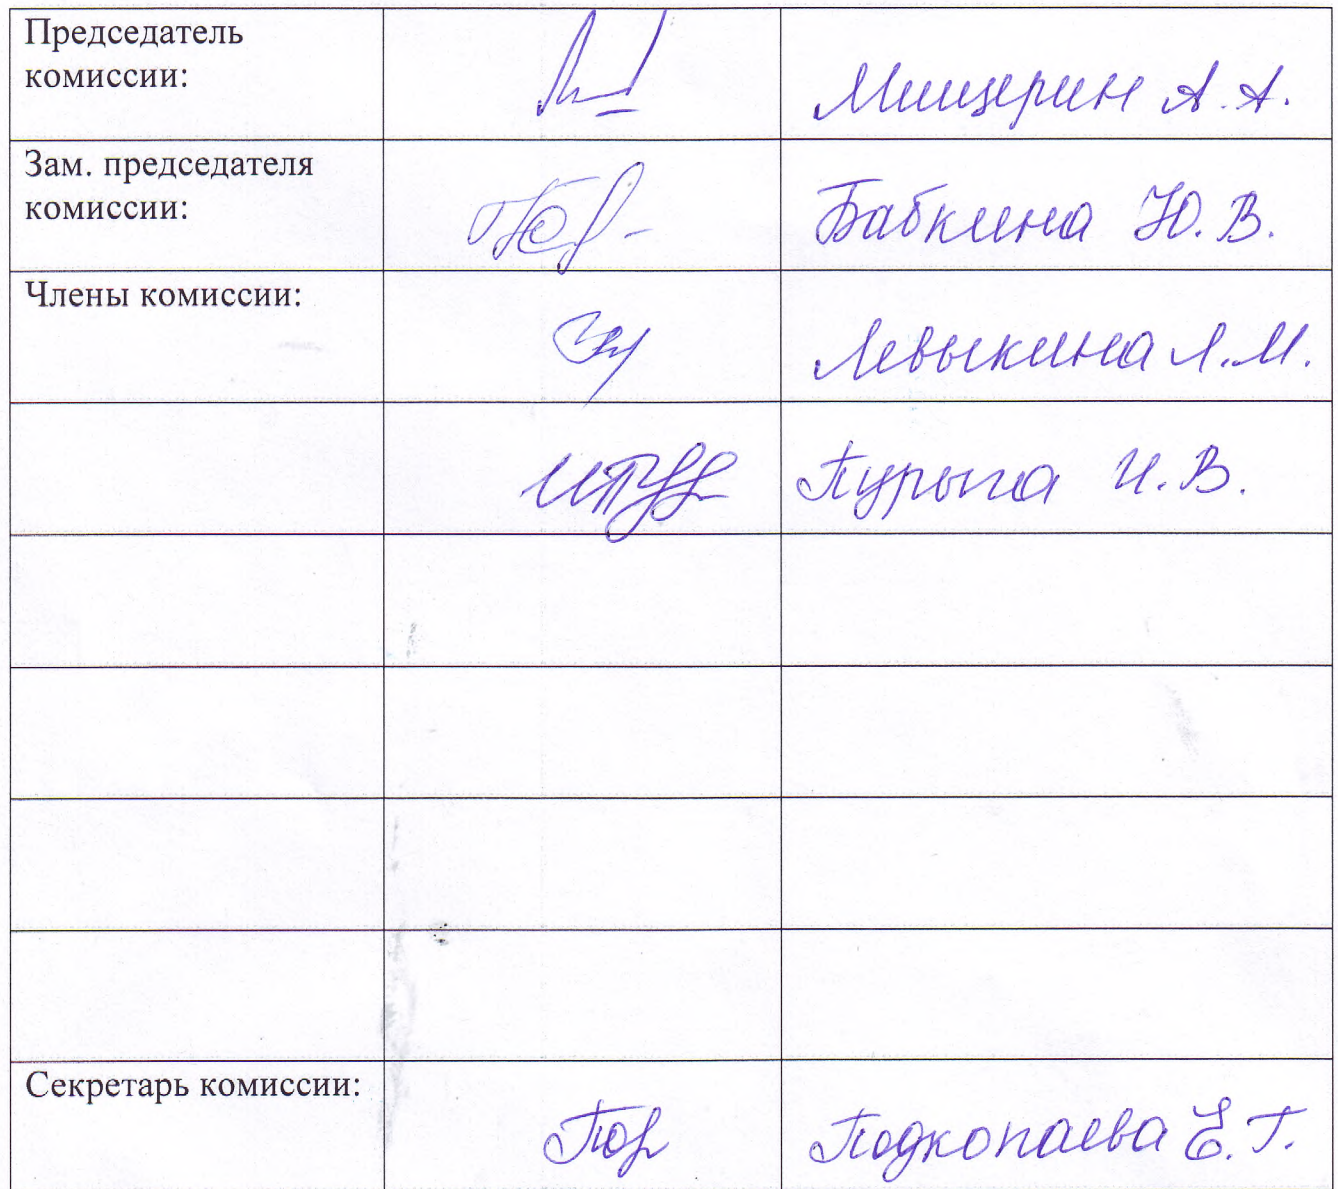 Председатель
комиссии:
Мищерин А.А.
Зам. председателя
комиссии:
Бабкина Ю.В.
Члены комиссии:
Левыкина Л.М.
Пурыга И.В.
Секретарь комиссии:
Подкопаева Е.Г.